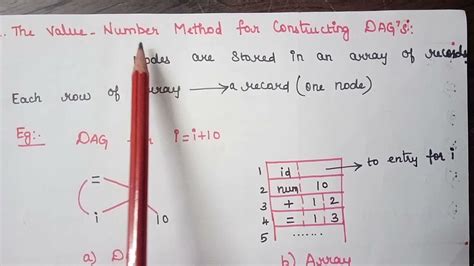 The Value-Number Method for Constructing DAG's:
odes are stored in an array of records
Each row of array → a record (one node)
Eg:- DAG i=i+10
=
i 10
1 id to entry for i
2 num 10
3 + 1 2
4 = 1 3
5 ...
a) D b) Array